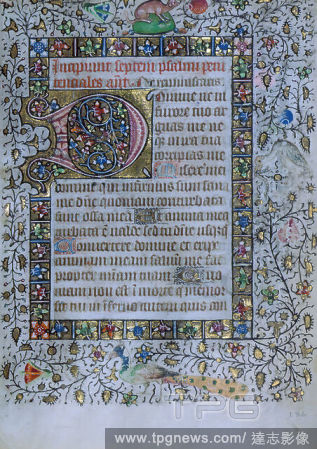 Incipiunt septem psalmi peni
tenciales añt. Ne reminiscaris.
Domine ne in
furore tuo ar
guas me ne
in ira tua
corripias me
Miserere mei
domine infirmus sum sana
me dñe quoniam conturbata
sunt ossa mea Et anima mea
turbata e valde sed tu dñe usqz
Convertere domine et erip
animam meam salvum me fac
propter miam tuam Quo
niam non est in morte q memor
sit tui in inferno autem quis con
TPG
www.tpgnews.com / 達志影像